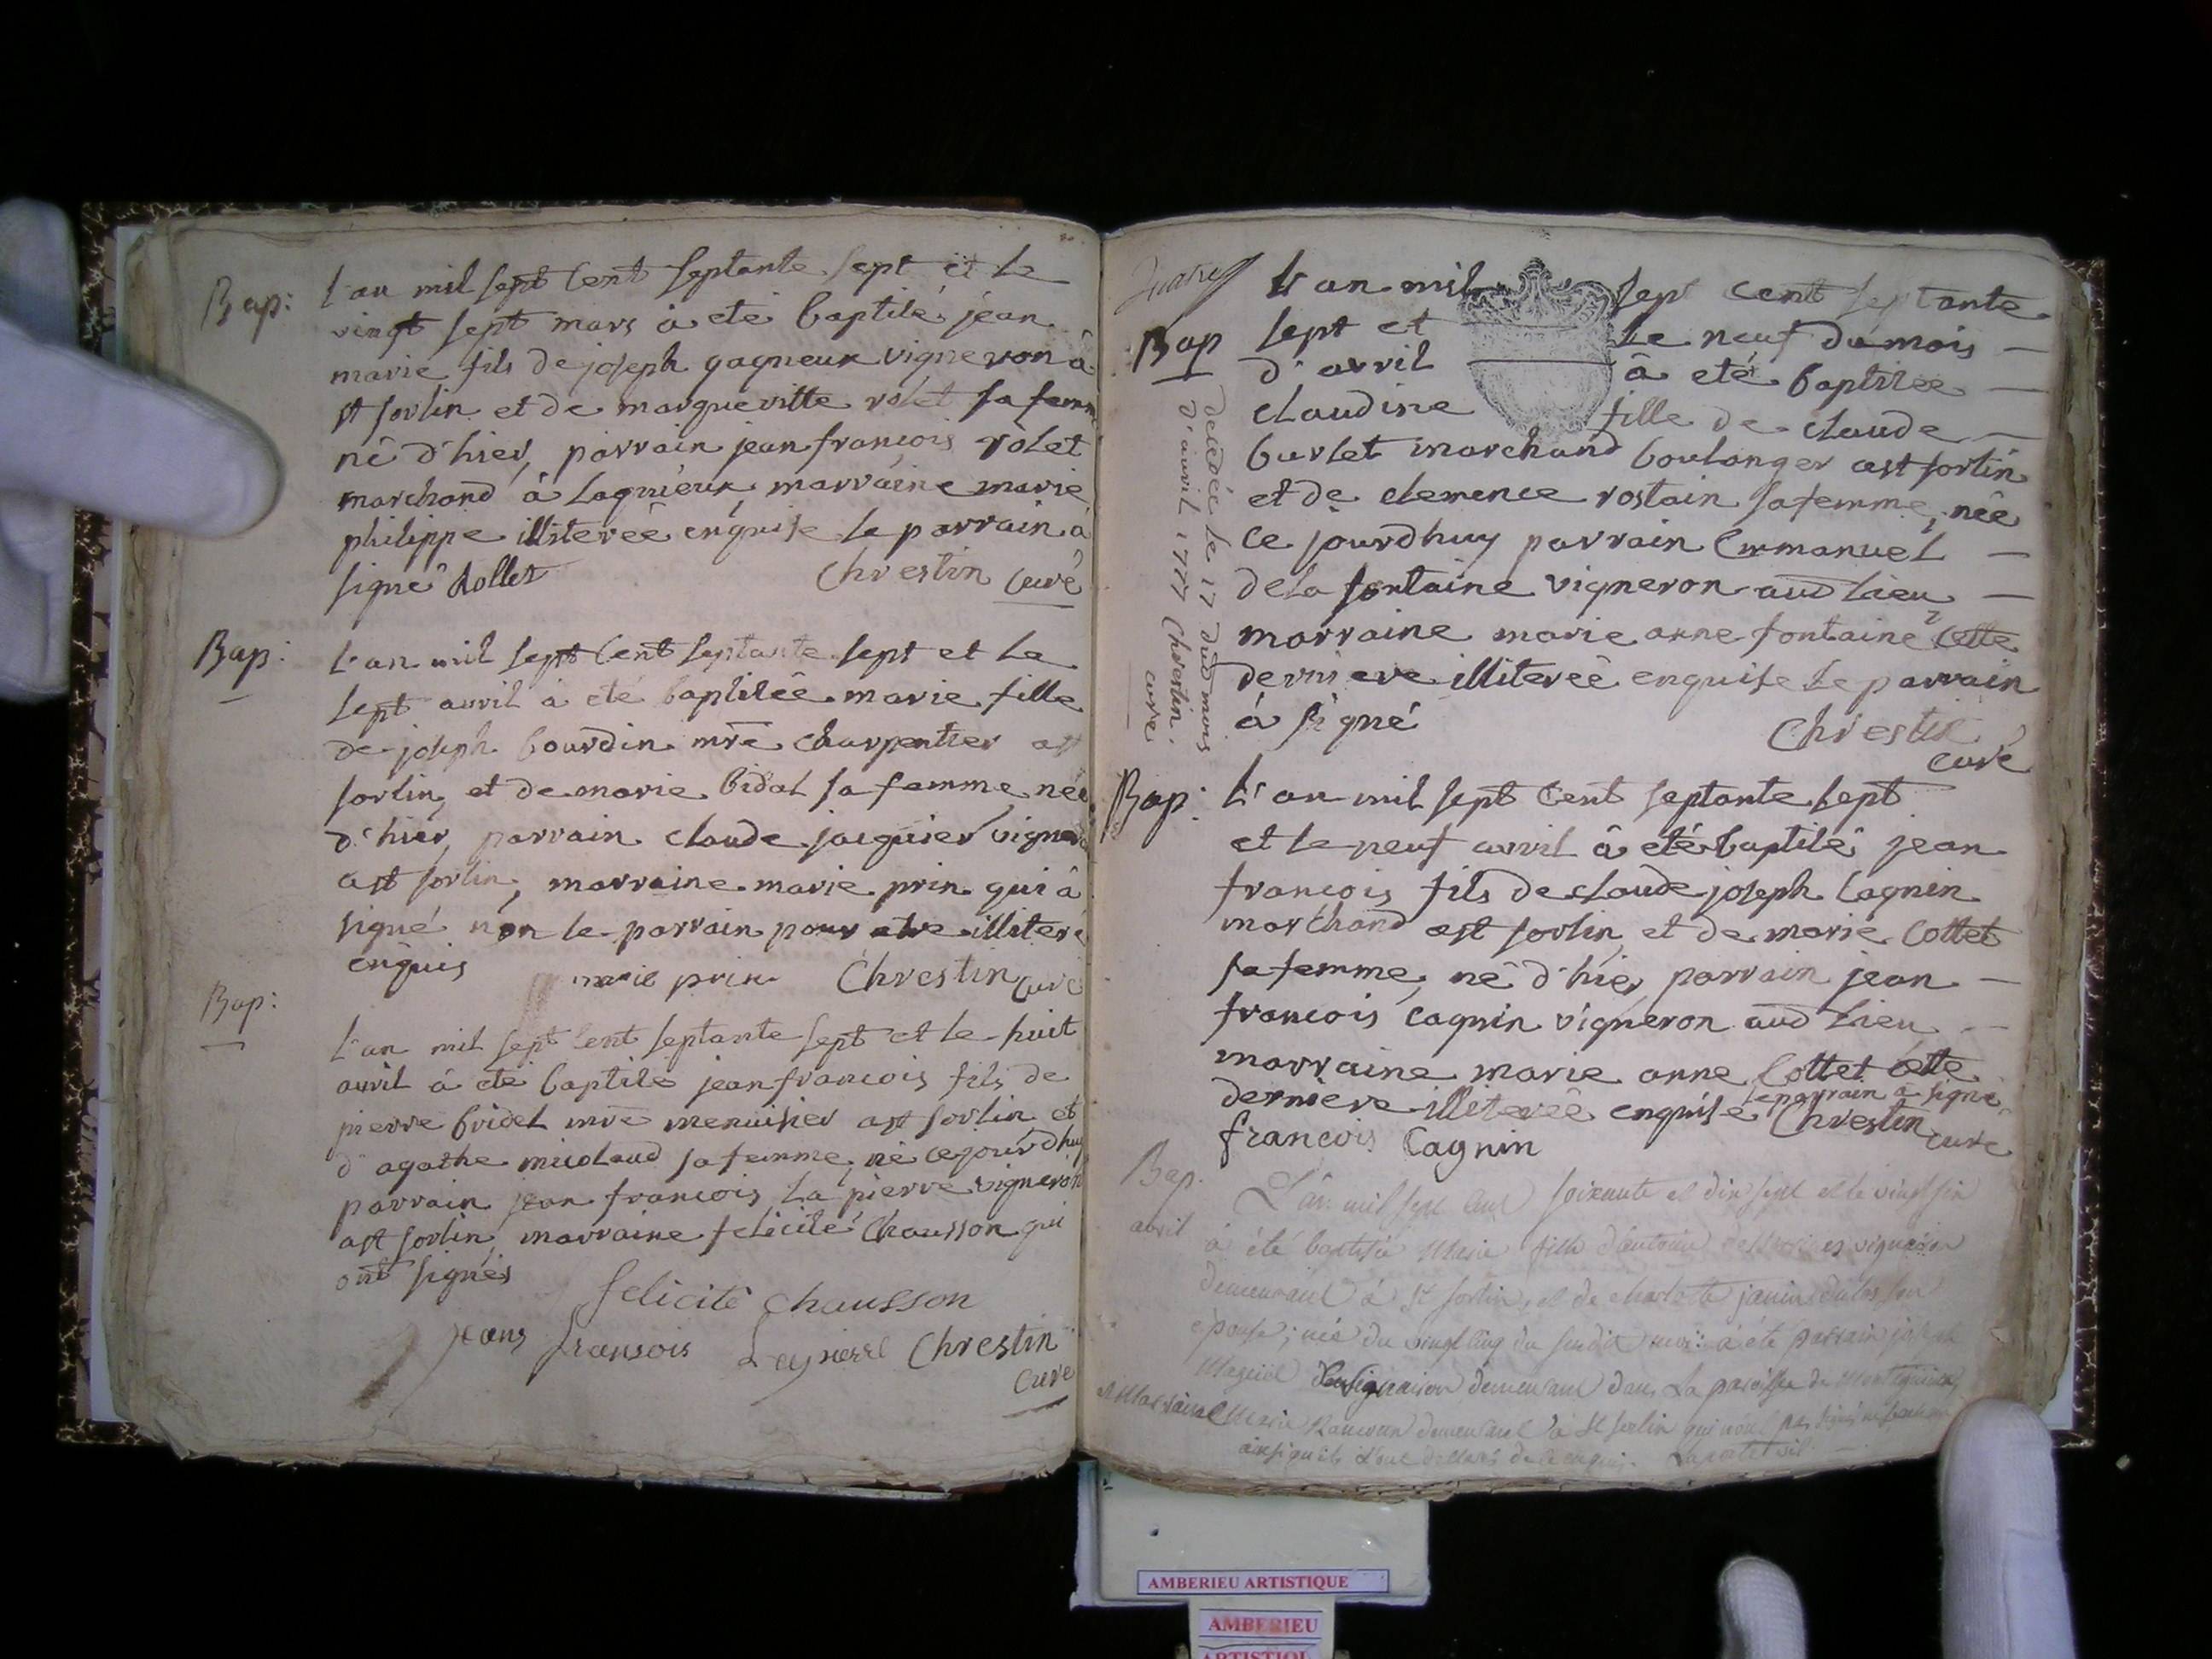 Bap:
L'an mil sept cent septante sept et le
vingt sept mars à eté baptisé jean
marie fils de joseph gagneux vigneron à
st sorlin et de margueritte rolet sa femme
né d'hier, parrain jean françois rolet
marchand à Lagnieux, marraine marie
philippe illiterée enquise le parrain à
signé Rollet Chrestin curé
Bap:
L'an mil sept cent septante sept et le
sept avril à eté baptisée marie fille
de joseph bourdin mre charpentier a st
sorlin, et de marie bidal sa femme, née
d'hier, parrain claude jacquier vigneron
a st sorlin, marraine marie prin qui à
signé non le parrain pour etre illiteré
enquis marie prin Chrestin curé
Bap:
L'an mil sept cent septante sept et le huit
avril à eté baptisé jean françois fils de
pierre bridel mre menuisier a st sorlin et
d'agathe micolaud sa femme, né ce jourdhuy
parrain jean francois La pierre vigneron
a st sorlin, marraine felicité Chausson qui
ont signés
felicité chausson
jeans fransois Lapierre Chrestin
curé
L'an mil sept cent septante
Bap sept et le neuf du mois
d'avril à eté baptisée
claudine fille de claude
burlet marchand boulanger a st sorlin
et de clemence rostain sa femme, née
ce jourdhuy parrain Emmanuel
de la fontaine vigneron aud lieu
marraine marie anne fontaine cette
derniere illiterée enquise le parrain
à signé Chrestin
curé
decedée le 17 dud mois
d'avril 1777 Chrestin.
curé
Bap:
L'an mil sept cent septante sept
et le neuf avril à eté baptisé jean
françois fils de claude joseph Cagnin
marchand a st sorlin, et de marie Cottet
sa femme, né d'hier, parrain jean
francois Cagnin vigneron aud lieu
marraine marie anne Cottet cette
derniere illiterée enquise le parrain a signé
Chrestin curé
francois Cagnin
Bap.
avril
L'an mil sept cent soixante et dix sept et le vingt six
a été baptisée Marie fille d'antoine vigneron
demeurant à St Sorlin, et de charlotte janin son
épouse; née du vingt cinq du susdit mois: a été parrain joseph
vigneron demeurant dans La paroisse de
Marraine Marie demeurant à St Sorlin qui n'ont pas signé
ainsi qu'ils l'ont déclaré de ce enquis.
AMBERIEU ARTISTIQUE
AMBERIEU
ARTISTIQUE